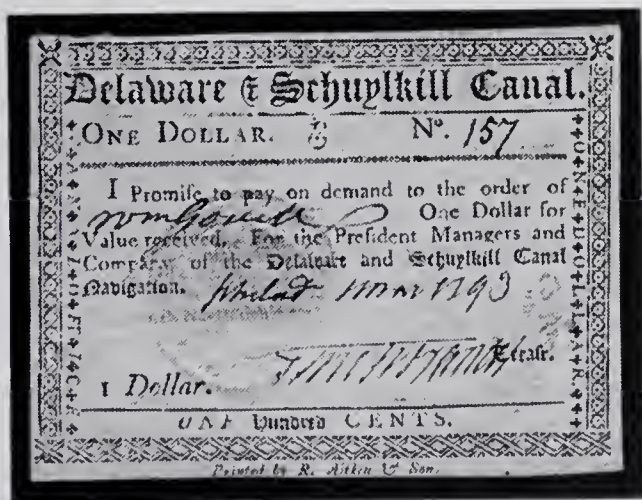 Delaware & Schuylkill Canal.
ONE DOLLAR. No. 157
I Promiſe to pay on demand to the order of
One Dollar for
Value received. For the Preſident Managers and
Company of the Delaware and Schuylkill Canal
Navigation. Philad 1793
Treaſr.
1 Dollar.
ONE Hundred CENTS.
Printed by R. Aitkin & Son.
ONE DOLLAR.